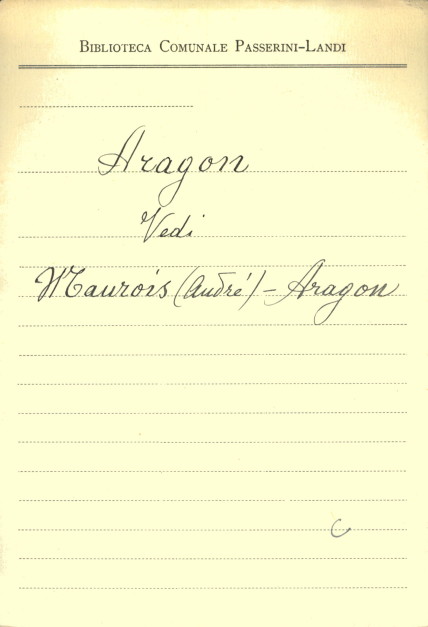 BIBLIOTECA COMUNALE PASSERINI-LANDI
Aragon
Vedi
Maurois (André) - Aragon
C